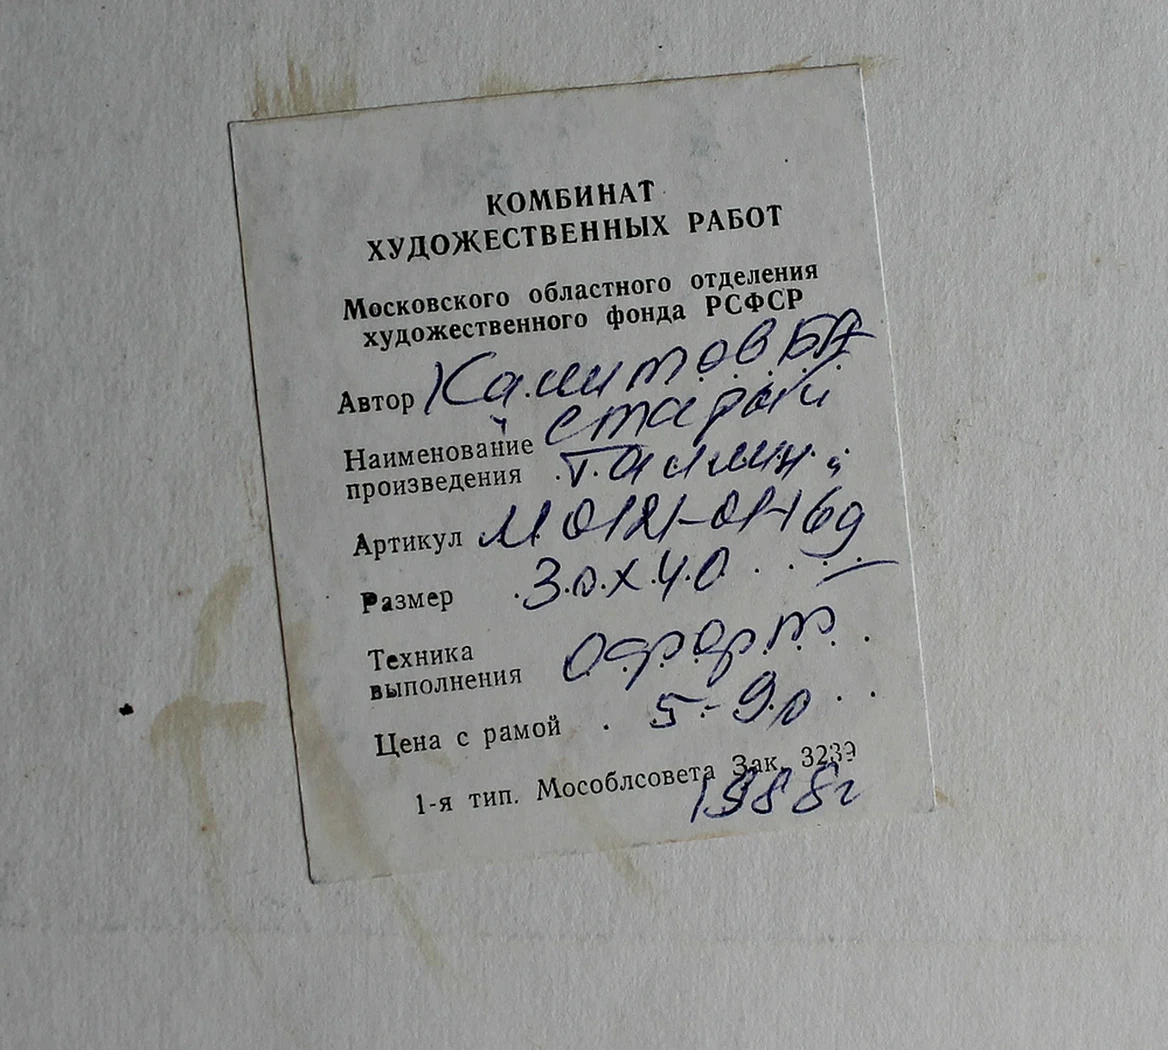 КОМБИНАТ
ХУДОЖЕСТВЕННЫХ РАБОТ
Московского областного отделения
художественного фонда РСФСР
Автор
Наименование старый
произведения Таллин
Артикул
Размер 30х40
Техника
выполнения офорт
Цена с рамой 5-90
1-я тип. Мособлсовета Зак. 3239
1988г